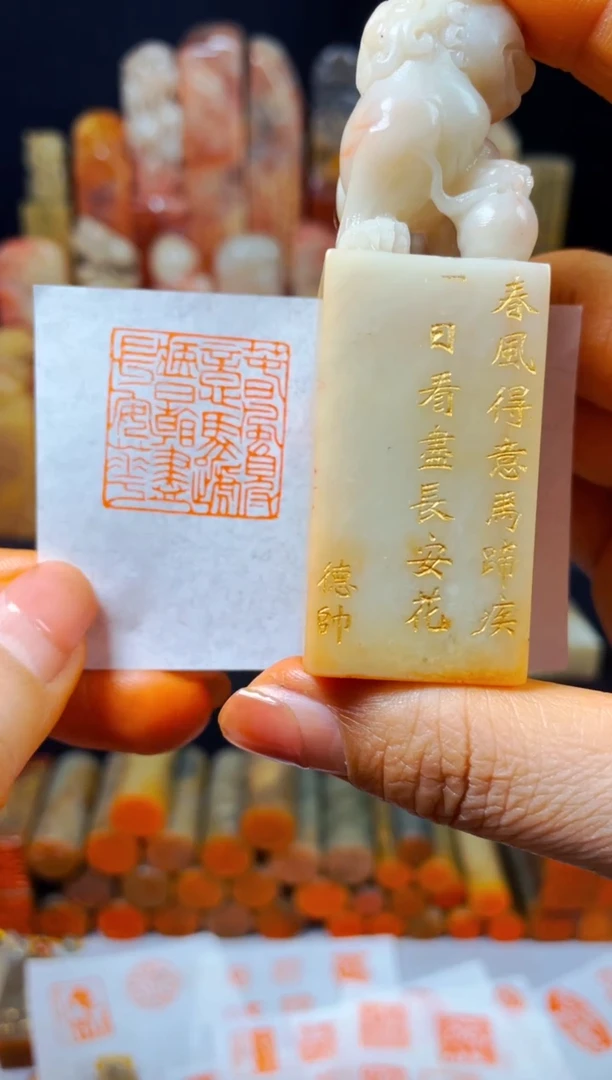 春風得意馬蹄疾
一日看盡長安花
德帥
春風得
意馬蹄
疾一日看盡
長安花